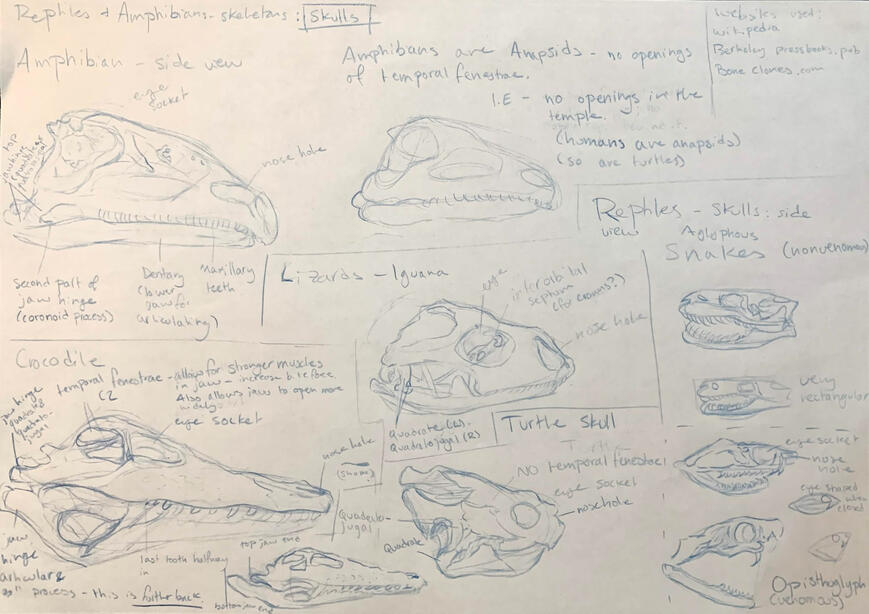 Reptiles + Amphibians - skeletons: Skulls
websites used:
wikipedia
Berkeley pressbooks.pub
Bone clones.com
Amphibian - side view
Amphibans are Anapsids - no openings
of temporal fenestrae.
I.E - no openings in the
temple.
(humans are anapsids)
(so are turtles)
eye
socket
nose hole
top
jaw hinge
second part of
jaw hinge
(coronoid process)
Dentary
(lower
jaw for
articulating)
Maxillary
teeth
Reptiles - Skulls: side
view
Aglophous
Snakes (nonvenomous)
very
rectangular
eye socket
nose
hole
eye shaped
when
closed
Opisthoglyph
(venomous)
Lizards - Iguana
eye
interorbital
septum
nose hole
Quadrate (L)
Quadatojugal (R)
Crocodile
temporal fenestrae - allows for stronger muscles
x2
in jaw - increase biteforce
Also allows jaw to open more
widely
eye socket
jaw hinge
quadrate
quadrato-
jugal
nose hole
(shape)
jaw
hinge
articulare
process - this is further back
last tooth halfway
in
top jaw end
bottom jaw end
Turtle Skull
NO temporal fenestrae
eye socket
nosehole
Quadato-
jugal
Quadrate